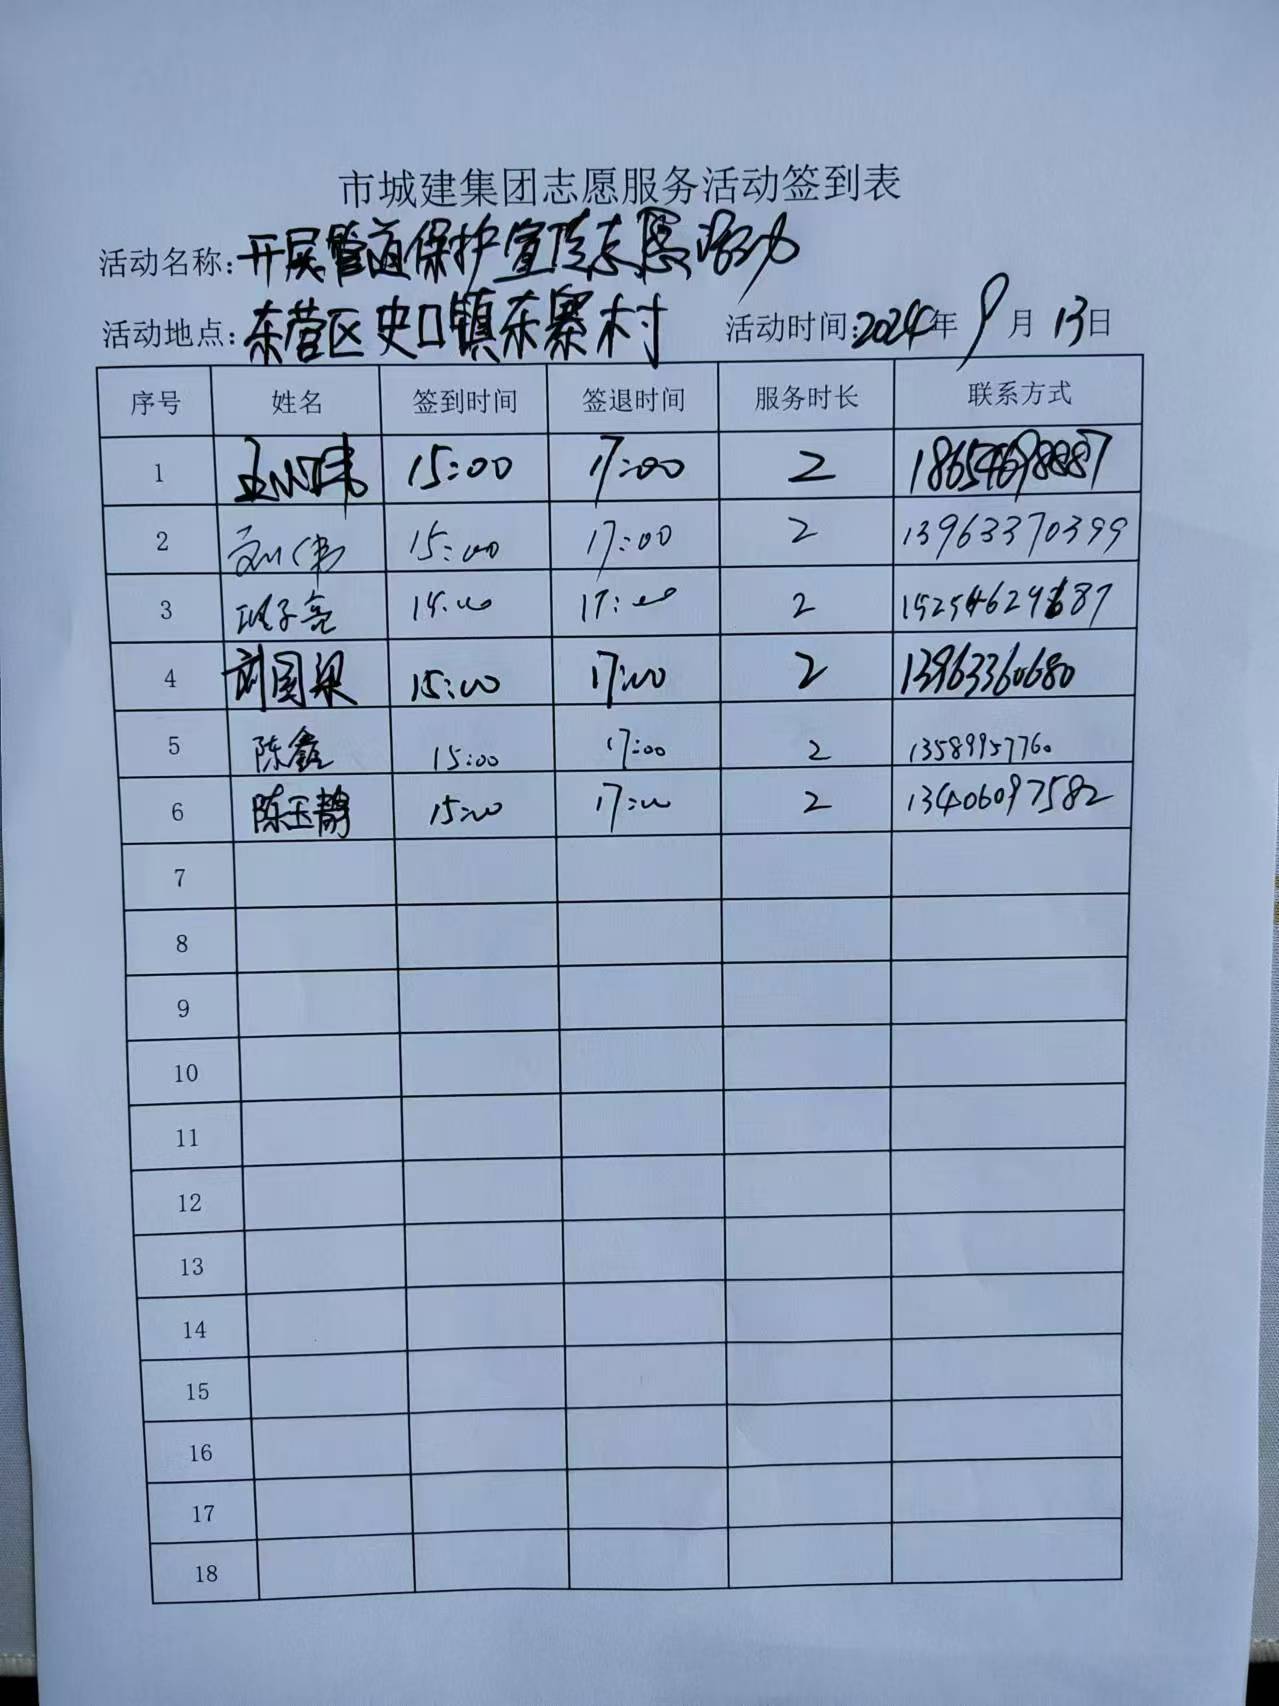 市城建集团志愿服务活动签到表
活动名称:开展管道保护宣传志愿活动
活动地点:东营区史口镇东寨村 活动时间:2024年9月13日
序号 姓名 签到时间 签退时间 服务时长 联系方式
1 15:00 17:00 2 18654698887
2 刘伟 15:00 17:00 2 13963370399
3 15:00 17:00 2 15254629687
4 刘国梁 15:00 17:00 2 13963360680
5 陈鑫 15:00 17:00 2 13589957760
6 陈玉静 15:00 17:00 2 13406097582
7
8
9
10
11
12
13
14
15
16
17
18